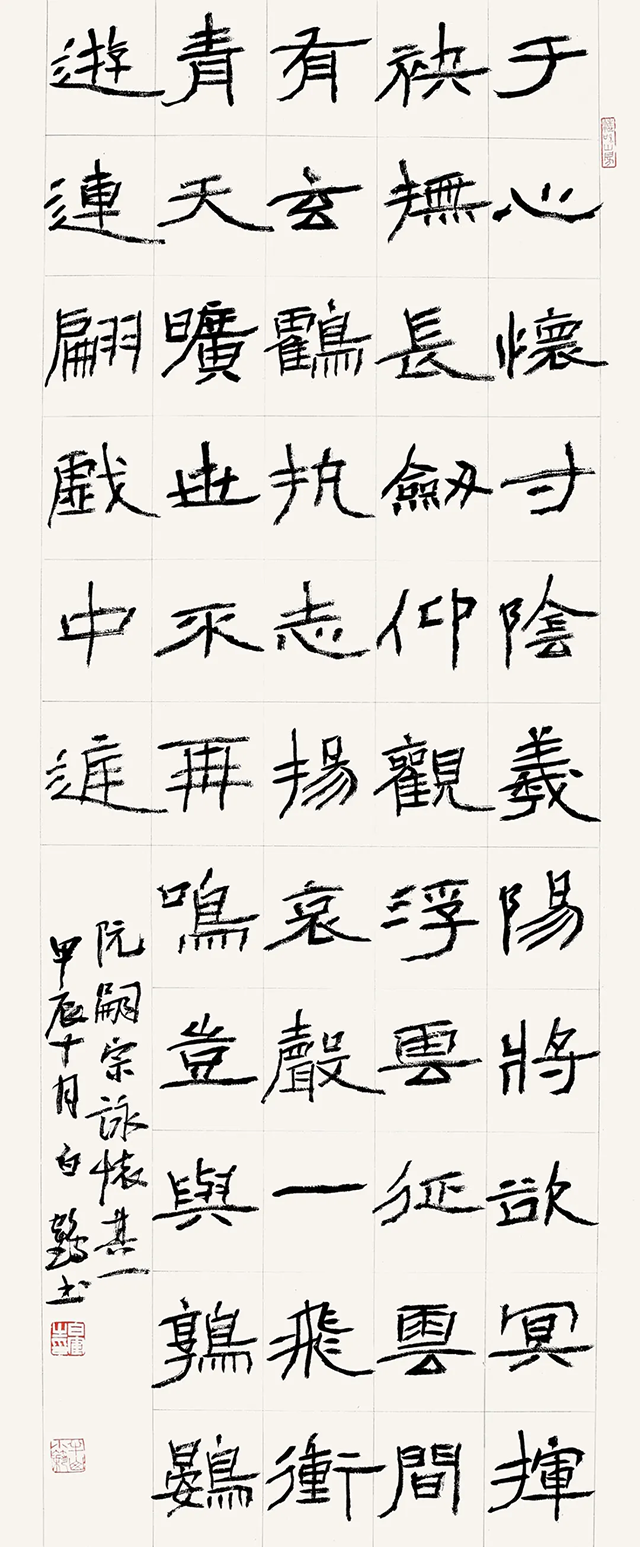 于心懷寸陰羲陽將欲冥揮
袂撫長劒仰觀浮雲征雲間
有玄鶴抗志揚哀聲一飛衝
青天曠世不再鳴豈與鶉鷃
遊連翩戲中庭
阮嗣宗詠懷其一
甲辰十月白鶴書